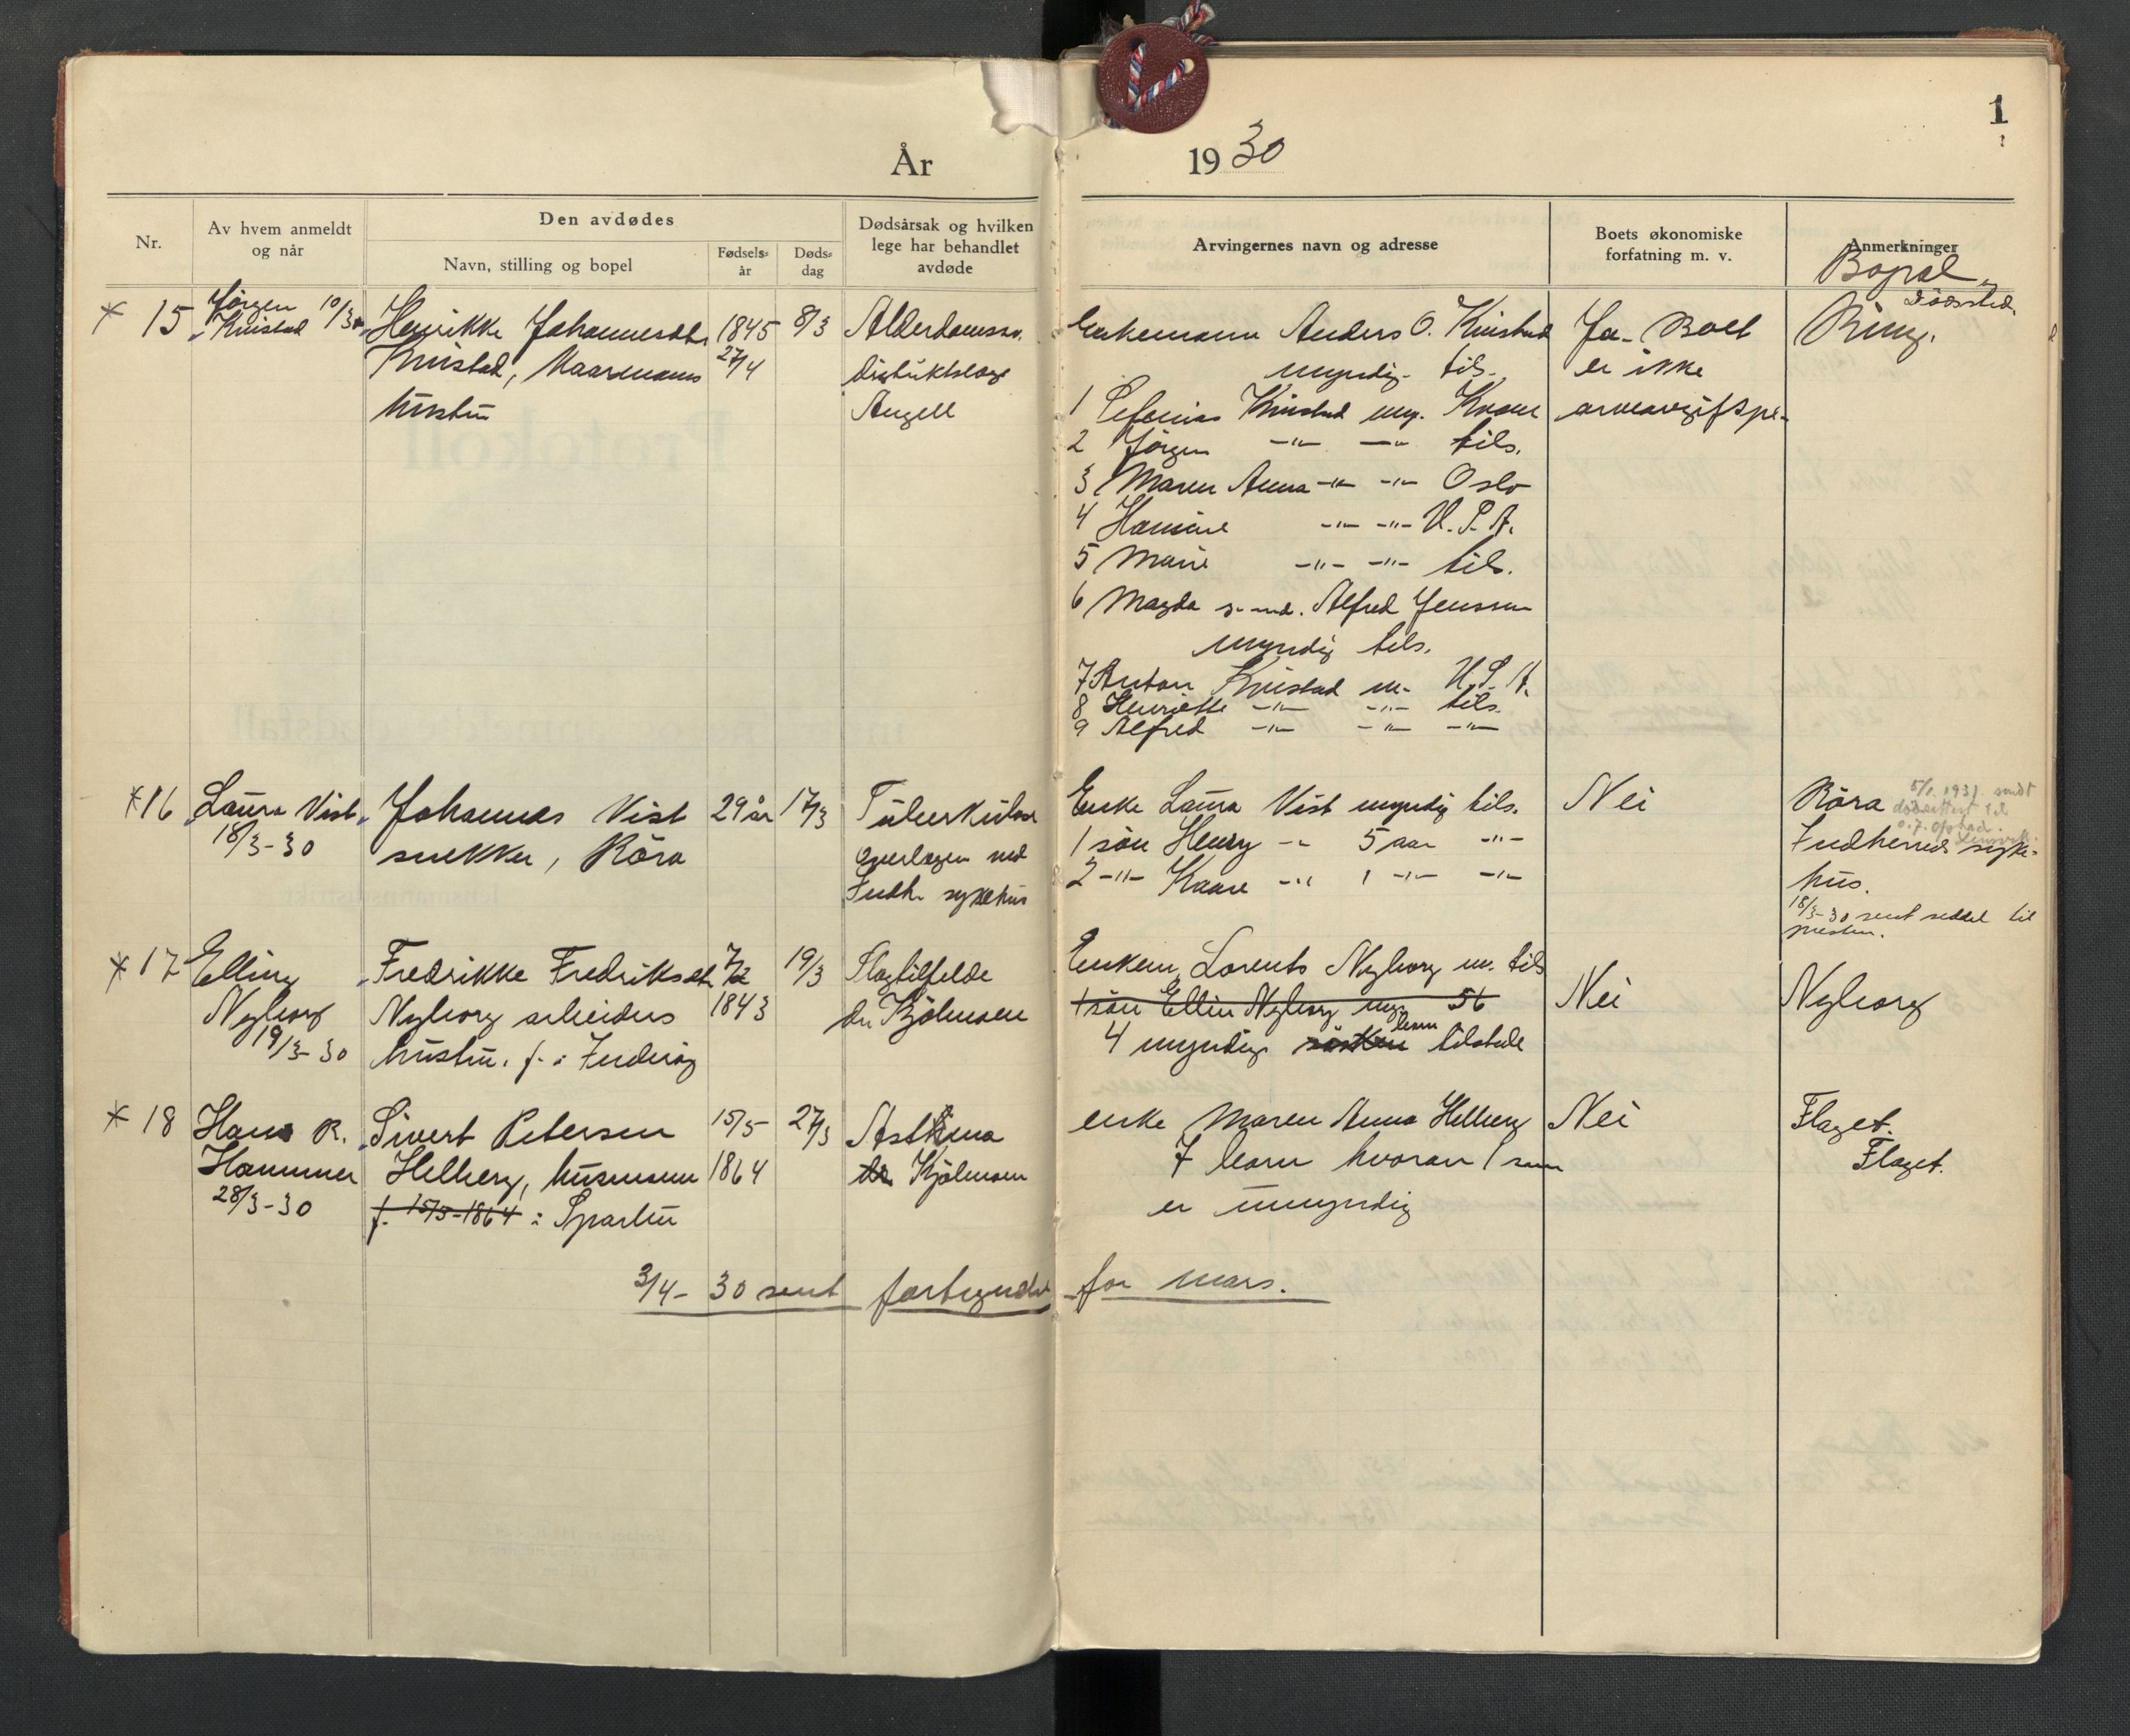 1
År 1930
Nr.
Av hvem anmeldt
og når
Den avdødes
Navn, stilling og bopel
Fødsels-
år
Døds-
dag
Dødsårsak og hvilken
lege har behandlet
avdøde
Arvingernes navn og adresse
Boets økonomiske
forfatning m. v.
Anmerkninger
Bopel
Dødssted
* 15
Jörgen
Kvistad 10/3 30
Henrikke Johannesdtr
Kvistad, Gaardmanns
hustru
1845
27/4
8/3
Alderdomssv.
Distriktslæge
Angell
Enkemann Anders O. Kvistad
myndig tils.
1 Kvistad myn. Kvam
2 Jörgen -"- -"- tils.
3 Maren Anna -"- -"- Oslo
4 Hansine -"- -"- U.S.A.
5 Marie -"- -"- tils.
6 Magda g. m. Alfred Jenssen
myndig tils.
7 Anton Kvistad m. U.S.A.
8 Henriette -"- -"- tils.
9 Alfred -"- -"- -"-
Ja. Boet
er ikke
arveavgiftspl.
Ring.
* 16
Laura Vist
18/3-30
Johannes Vist
snekker, Röra
29 år
17/3
Tuberkulose
Overlægen ved
Indh. sykehus
Enke Laura Vist myndig tils.
1 sön Henry -"- 5 aar -"-
2 -"- Kaare -"- 1 -"- -"-
Nei
Röra
5/1 1931 sendt
dödsattest til
Indherreds syke-
hus.
18/3-30 sent seddel til
presten.
* 17
Elling
Nyborg
19/3-30
Fredrikke Fredriksdtr
Nyborg arbeiders
hustru. f. i Inderöy
7/2
1843
19/3
Slagtilfelde
Dr. Kjölmoen
Enkem. Lorents Nyborg m. tils
1 sön Elling Nyborg myn. 56
4 myndige barn tilstede
Nei
Nyborg
* 18
Hans R.
Hammer
28/3-30
Sivert Petersen
Helberg, husmann
f. 15/5-1864 i Sparbu
15/5
1864
27/3
Asthma
Dr. Kjölmoen
enke Maren Anna Helberg
7 barn hvorav 1 som
er umyndig
Nei
Flaget.
Flaget.
3/4-30 sent fortegnelse for mars.